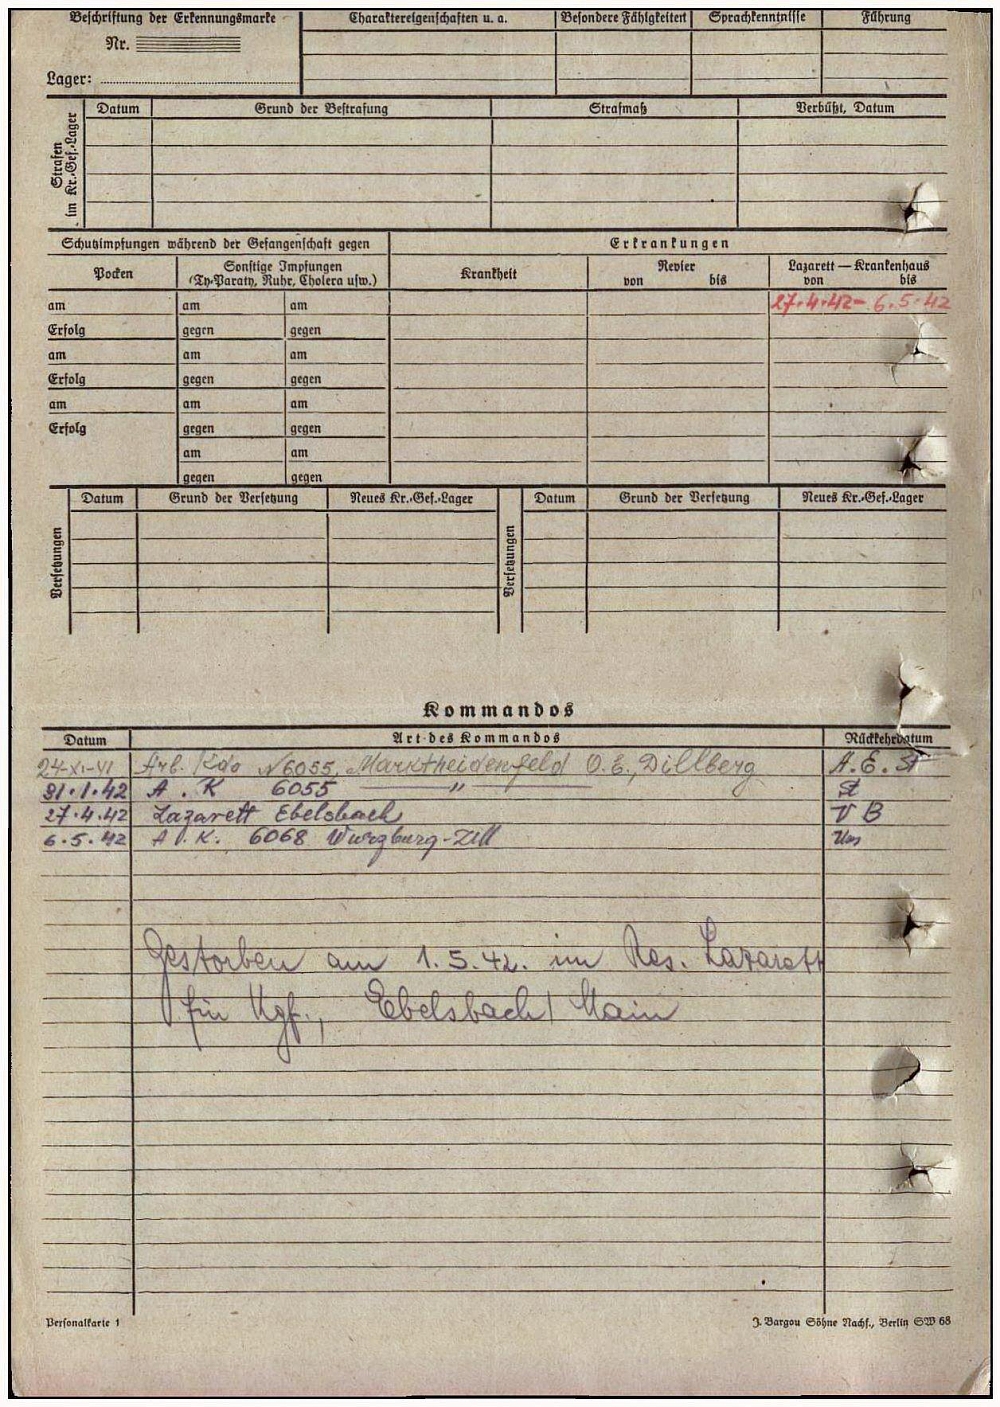 Beschriftung der Erkennungsmarke
Nr.
Lager:
Charaktereigenschaften u. a. Besondere Fähigkeiten Sprachkenntnisse Führung
Strafen im Kr.-Gef.-Lager
Datum Grund der Bestrafung Strafmaß Verbüßt, Datum
Schutzimpfungen während der Gefangenschaft gegen Erkrankungen
Pocken Sonstige Impfungen Krankheit Revier Lazarett — Krankenhaus
(Ty-Paraty, Ruhr, Cholera usw.) von bis von bis
am am am 27.4.42- 6.5.42
Erfolg gegen gegen
am am am
Erfolg gegen gegen
am am am
Erfolg gegen gegen
am am
gegen gegen
Versetzungen Datum Grund der Versetzung Neues Kr.-Gef.-Lager Versetzungen Datum Grund der Versetzung Neues Kr.-Gef.-Lager
Kommandos
Datum Art des Kommandos Rückkehrdatum
24-XI-41 Arb. Kdo N 6055, Marktheidenfeld O.E., Dillberg A.E. St
31.1.42 A. K 6055 — " — St
27.4.42 Lazarett Ebelsbach V B
6.5.42 A. K. 6068 Würzburg-Zell
Gestorben am 1.5.42. im Res. Lazarett
für Kgf., Ebelsbach/Main
Personalkarte 1 J. Bargou Söhne Nachf., Berlin SW 68